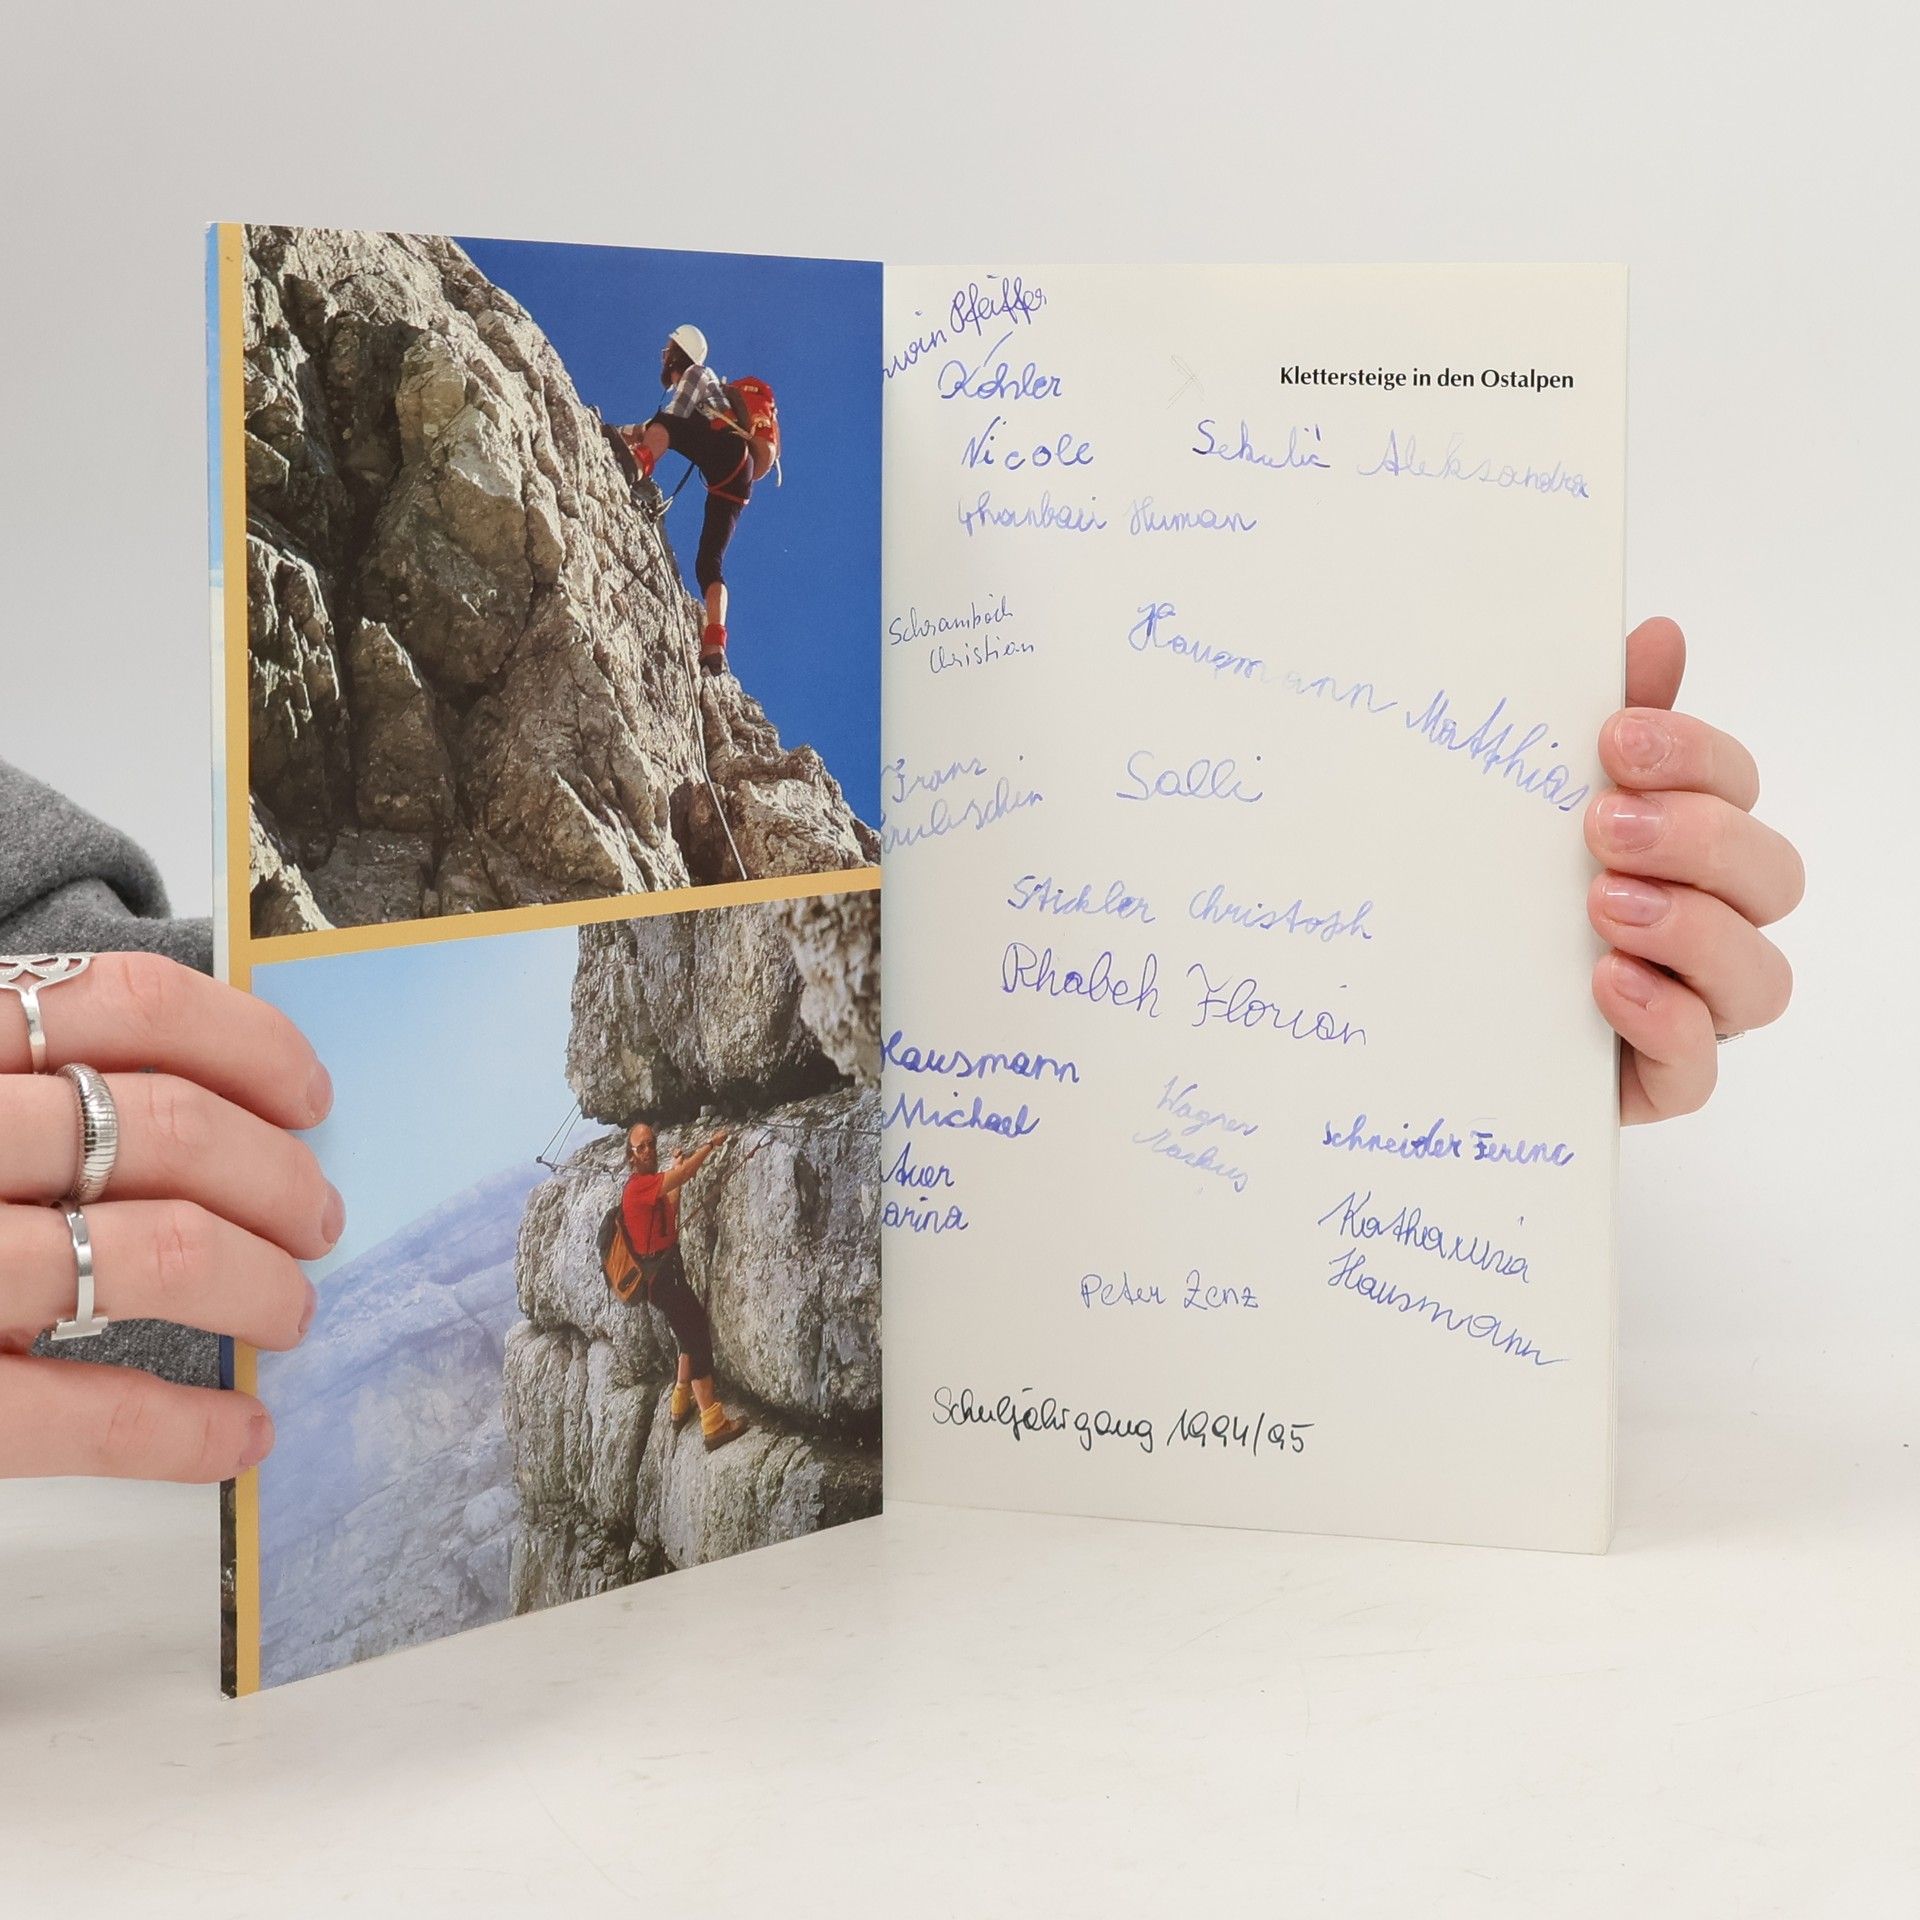 Pfeiffer
Köhler
Klettersteige in den Ostalpen
Nicole
Sekulić Aleksandra
Human
Schrambock
Christian
Hausmann Matthias
Franz
Salli
Stickler Christoph
Rhabek Florian
Hausmann
Michael
Wagner
Markus
Schneider Ferenc
Auer
arina
Katharina
Hausmann
Peter Zenz
Schuljahrgang 1994/95